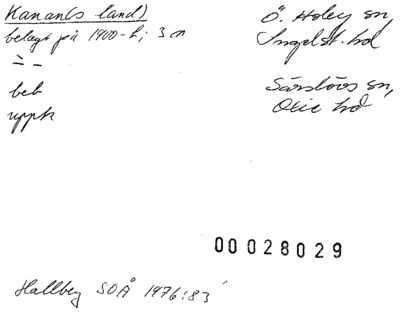 Kanan(s land)
Ö. Hoby sn,
belagt på 1900-t; 3 n
Ingelst. hd
= -
beb
Särslövs sn,
uppk
Oxie hd
00028029
Hallberg SOÅ 1976:83